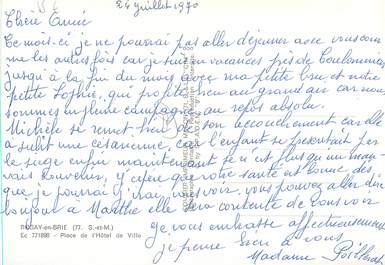 24 juillet 1970
Chère Aimée
Ce mois-ci je ne pourrai pas aller déjeuner avec vous com
me les autres fois car je suis en vacances près de Coulommiers
jusqu'à la fin du mois avec ma petite bru et notre
petite Sophie, qui profite bien au grand air car nous
sommes en pleine campagne au repos absolu.
Michèle se remet bien de son accouchement car elle
a subit une césarienne, car l'enfant se présentait par
le siège enfin maintenant ce n'est plus qu'un mau
vais souvenir, j'espère que votre santé est bonne dès
que je pourrai j'irai vous voir, vous pouvez aller dire
bonjour à Marthe elle sera contente de vous voir
ROZAY-en-BRIE (77. S.-et-M.)
Ec 771898 - Place de l'Hôtel de Ville
je vous embrasse affectueusement
je pense bien à vous
Madame